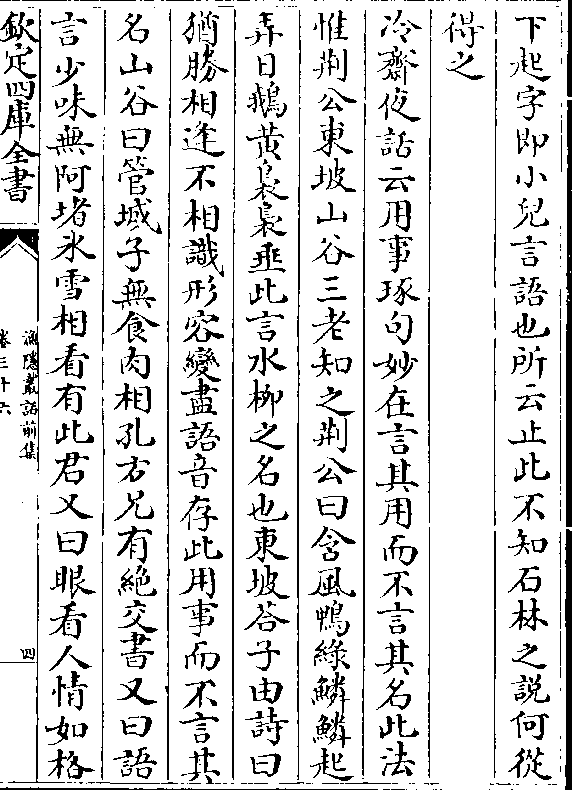 下起字即小兒言語也所云止此不知石林之說何從
得之
冷齋夜話云用事琢句妙在言其用而不言其名此法
惟荆公東坡山谷三老知之荆公曰含風鴨綠鱗鱗起
弄日鵝黃裊裊垂此言水柳之名也東坡荅子由詩曰
猶勝相逢不相識形容變盡語音存此用事而不言其
名山谷曰管城子無食肉相孔方兄有絶交書又曰語
言少味無阿堵氷雪相看有此君又曰眼看人情如格
欽定四庫全書
漁隱叢話前集
卷三十六
四